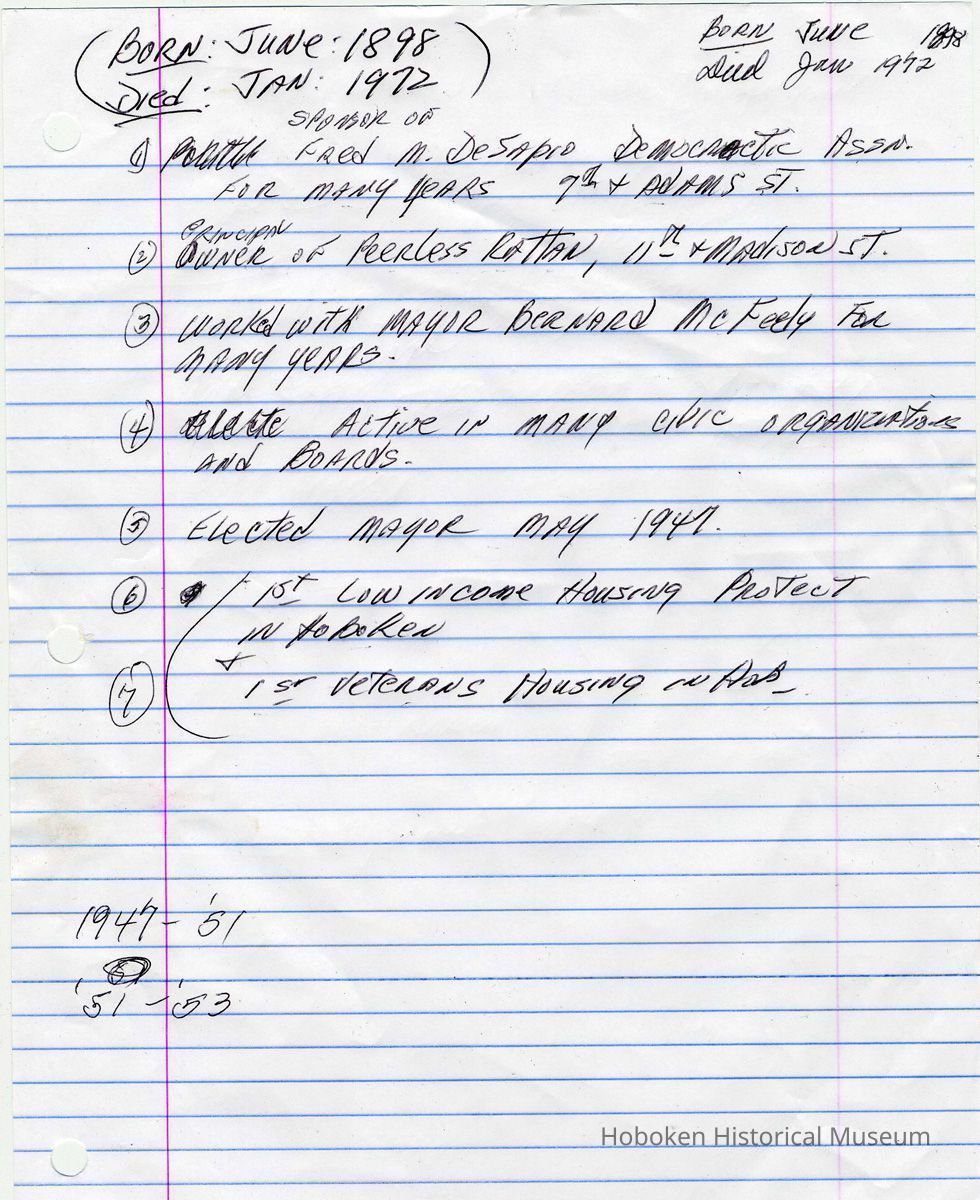 (BORN: JUNE: 1898
Died: JAN: 1972)
BORN June 1898
Died Jan 1972
SPONSOR OF
1) FRED M. DeSapio DemocRActic ASSN.
FOR MANY YEARS 9th & ADAMS ST.
PRINCIPAL
2) OWNER OF PeeRless RATTAN, 11th & MADISON ST.
3) WORKed with MAYOR BeRNARd McFeely FOR
MANY YEARS.
4) Active IN MANY CIVIC ORGANIZATIONS
ANd BOARds.
5) Elected MAYOR MAY 1947.
6) 1st Low income Housing Protect
IN HoBoKeN
&
7) 1st VeteRANS Housing in HoB.
1947 - '51
'51 - '53
Hoboken Historical Museum